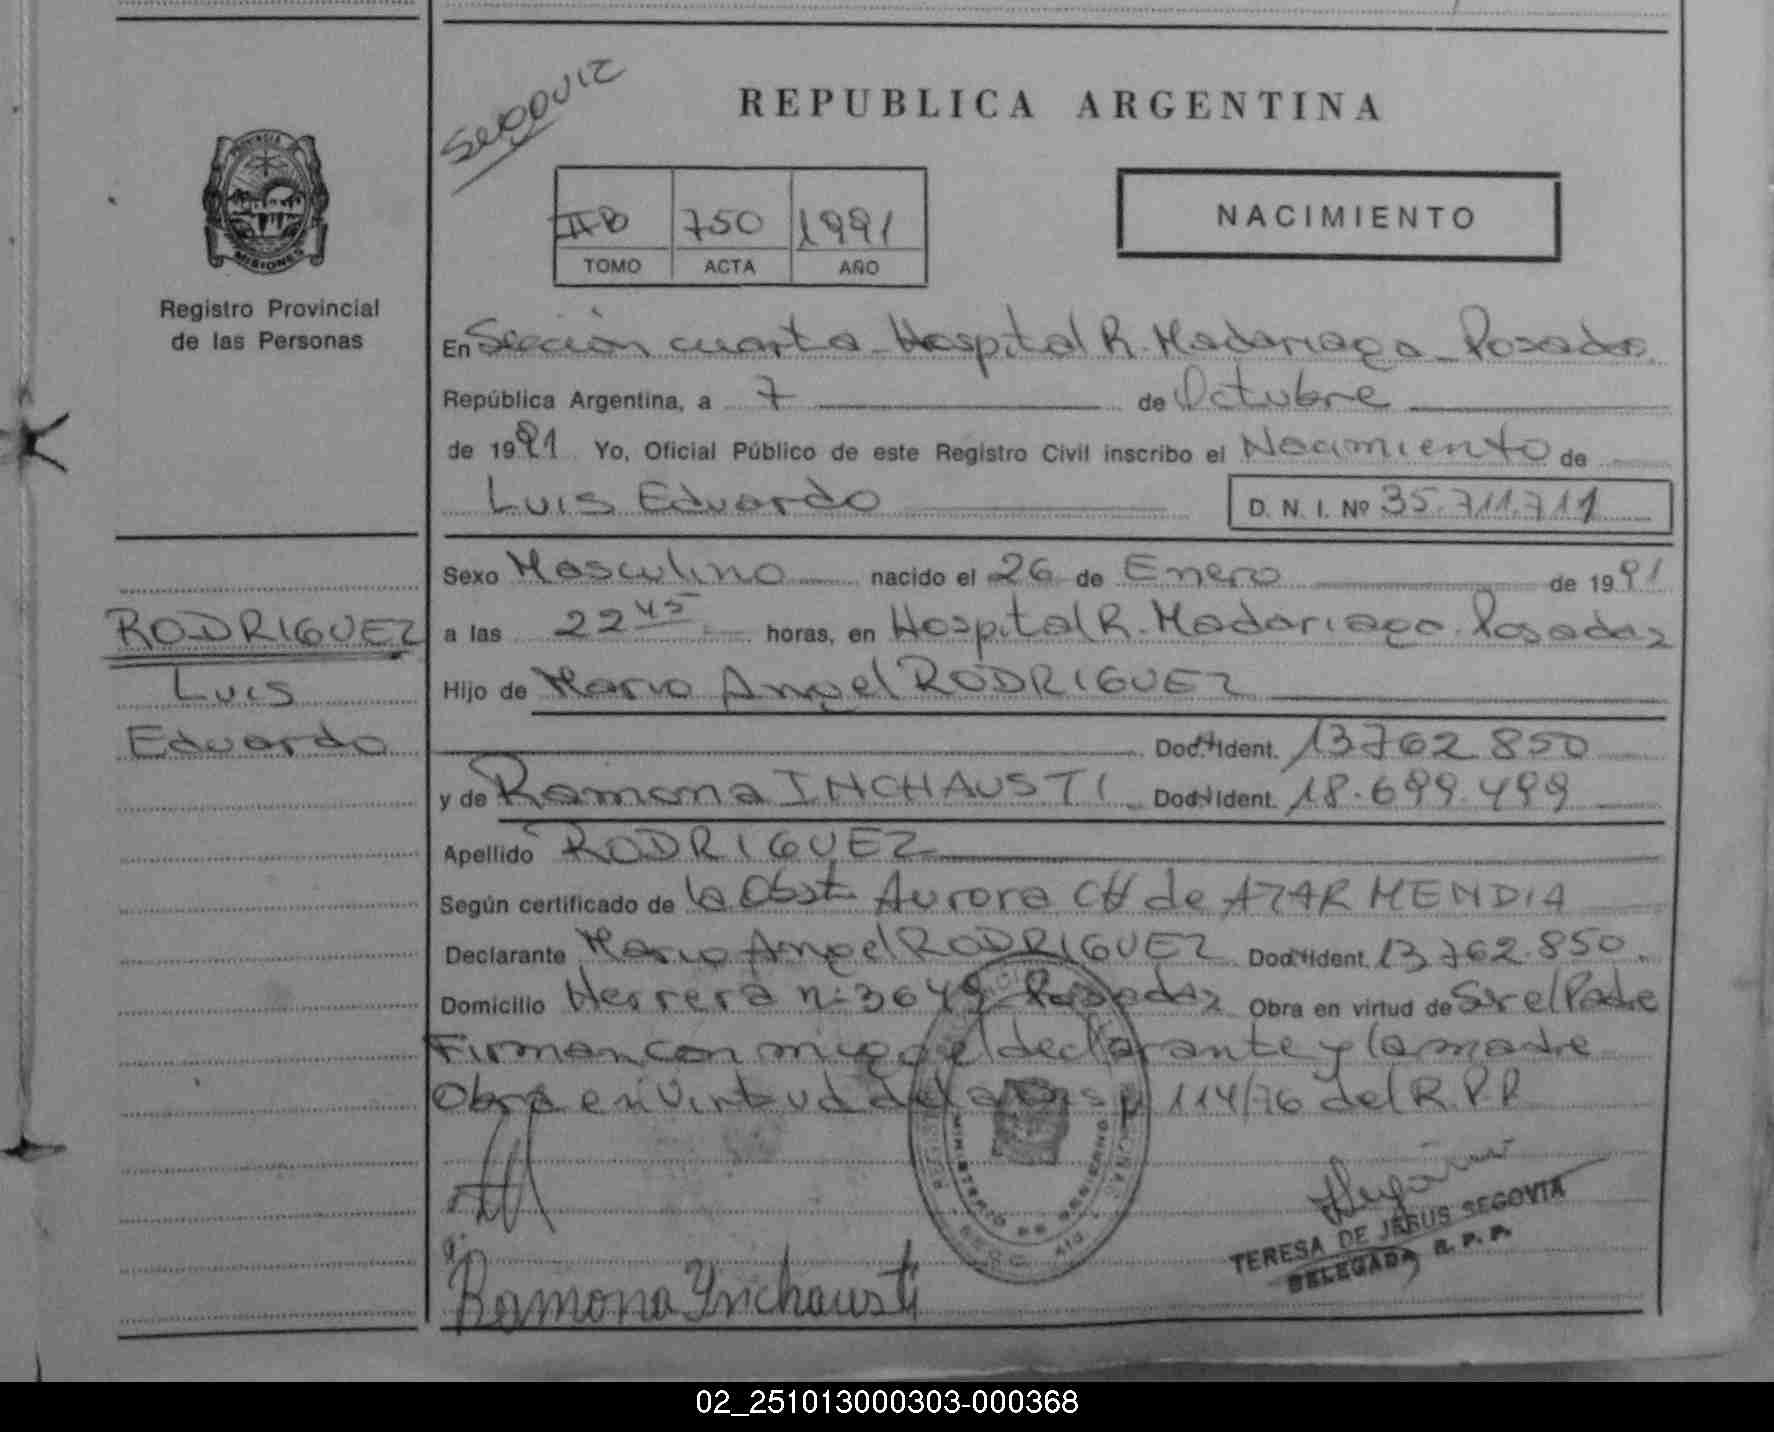 REPUBLICA ARGENTINA
NACIMIENTO
II B 750 1991
TOMO ACTA AÑO
PROVINCIA
MISIONES
Registro Provincial
de las Personas
En Sección cuarta - Hospital R. Madariaga - Posadas
República Argentina, a 7 de Octubre
de 1991 Yo, Oficial Público de este Registro Civil inscribo el Nacimiento de
Luis Eduardo D. N. I. Nº 35.711.711
Sexo Masculino nacido el 26 de Enero de 1991
RODRIGUEZ
Luis
Eduardo
a las 22 45 horas, en Hospital R. Madariaga. Posadas
Hijo de Mario Angel RODRIGUEZ
Doc. Ident. 13762850
y de Ramona INCHAUSTI Doc. Ident. 18.699.499
Apellido RODRIGUEZ
Según certificado de la Obst. Aurora CH de AZARMENDIA
Declarante Mario Angel RODRIGUEZ Doc. Ident. 13762.850.
Domicilio Herrera nº 3649 Posadas Obra en virtud de Ser el Padre
Firman con migo el declarante y la madre
Obra en Virtud de la 114/76 del R.P.P
MINISTERIO DE GOBIERNO
TERESA DE JESUS SEGOVIA
DELEGADA R. P. P.
Ramona Ynchausti
02_251013000303-000368